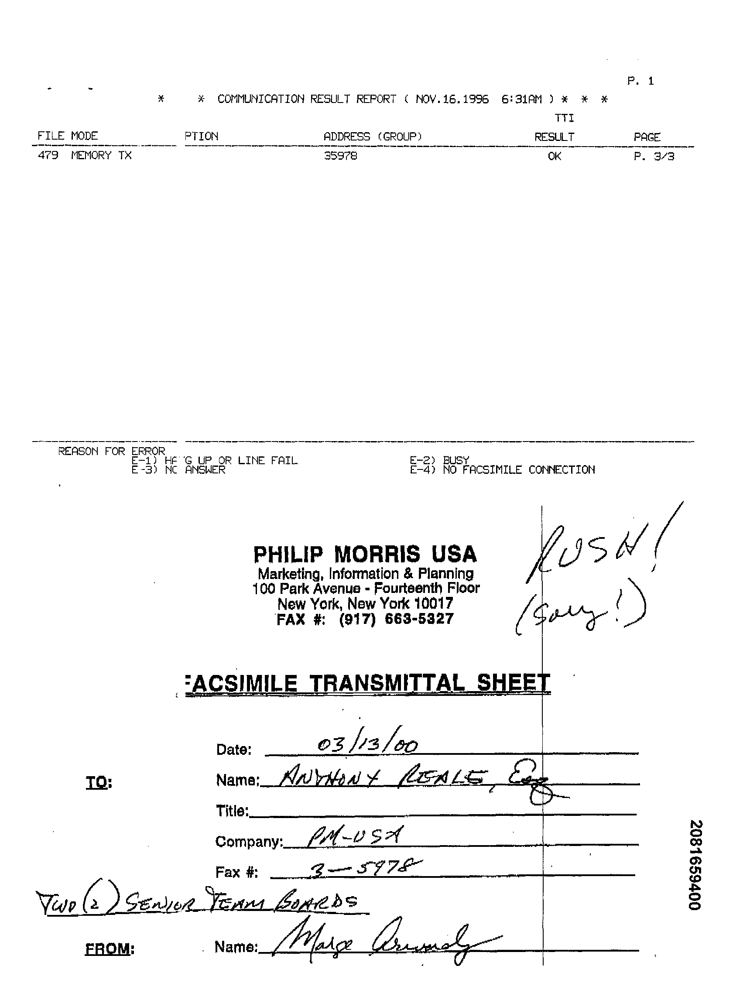 P. 1
* * COMMUNICATION RESULT REPORT ( NOV.16.1996 6:31AM ) * * *
TTI
FILE MODE PTION ADDRESS (GROUP) RESULT PAGE
479 MEMORY TX 35978 OK P. 3/3
REASON FOR ERROR
E-1) HA 'G UP OR LINE FAIL E-2) BUSY
E-3) NO ANSWER E-4) NO FACSIMILE CONNECTION
RUSH!
(Sorry!)
PHILIP MORRIS USA
Marketing, Information & Planning
100 Park Avenue - Fourteenth Floor
New York, New York 10017
FAX #: (917) 663-5327
FACSIMILE TRANSMITTAL SHEET
Date: 03/13/00
TO: Name: ANTHONY REALE, Esq
Title:
Company: PM-USA
Fax #: 3-5978
TWO (2) SENIOR TEAM BOARDS
FROM: Name: Marge
2081659400